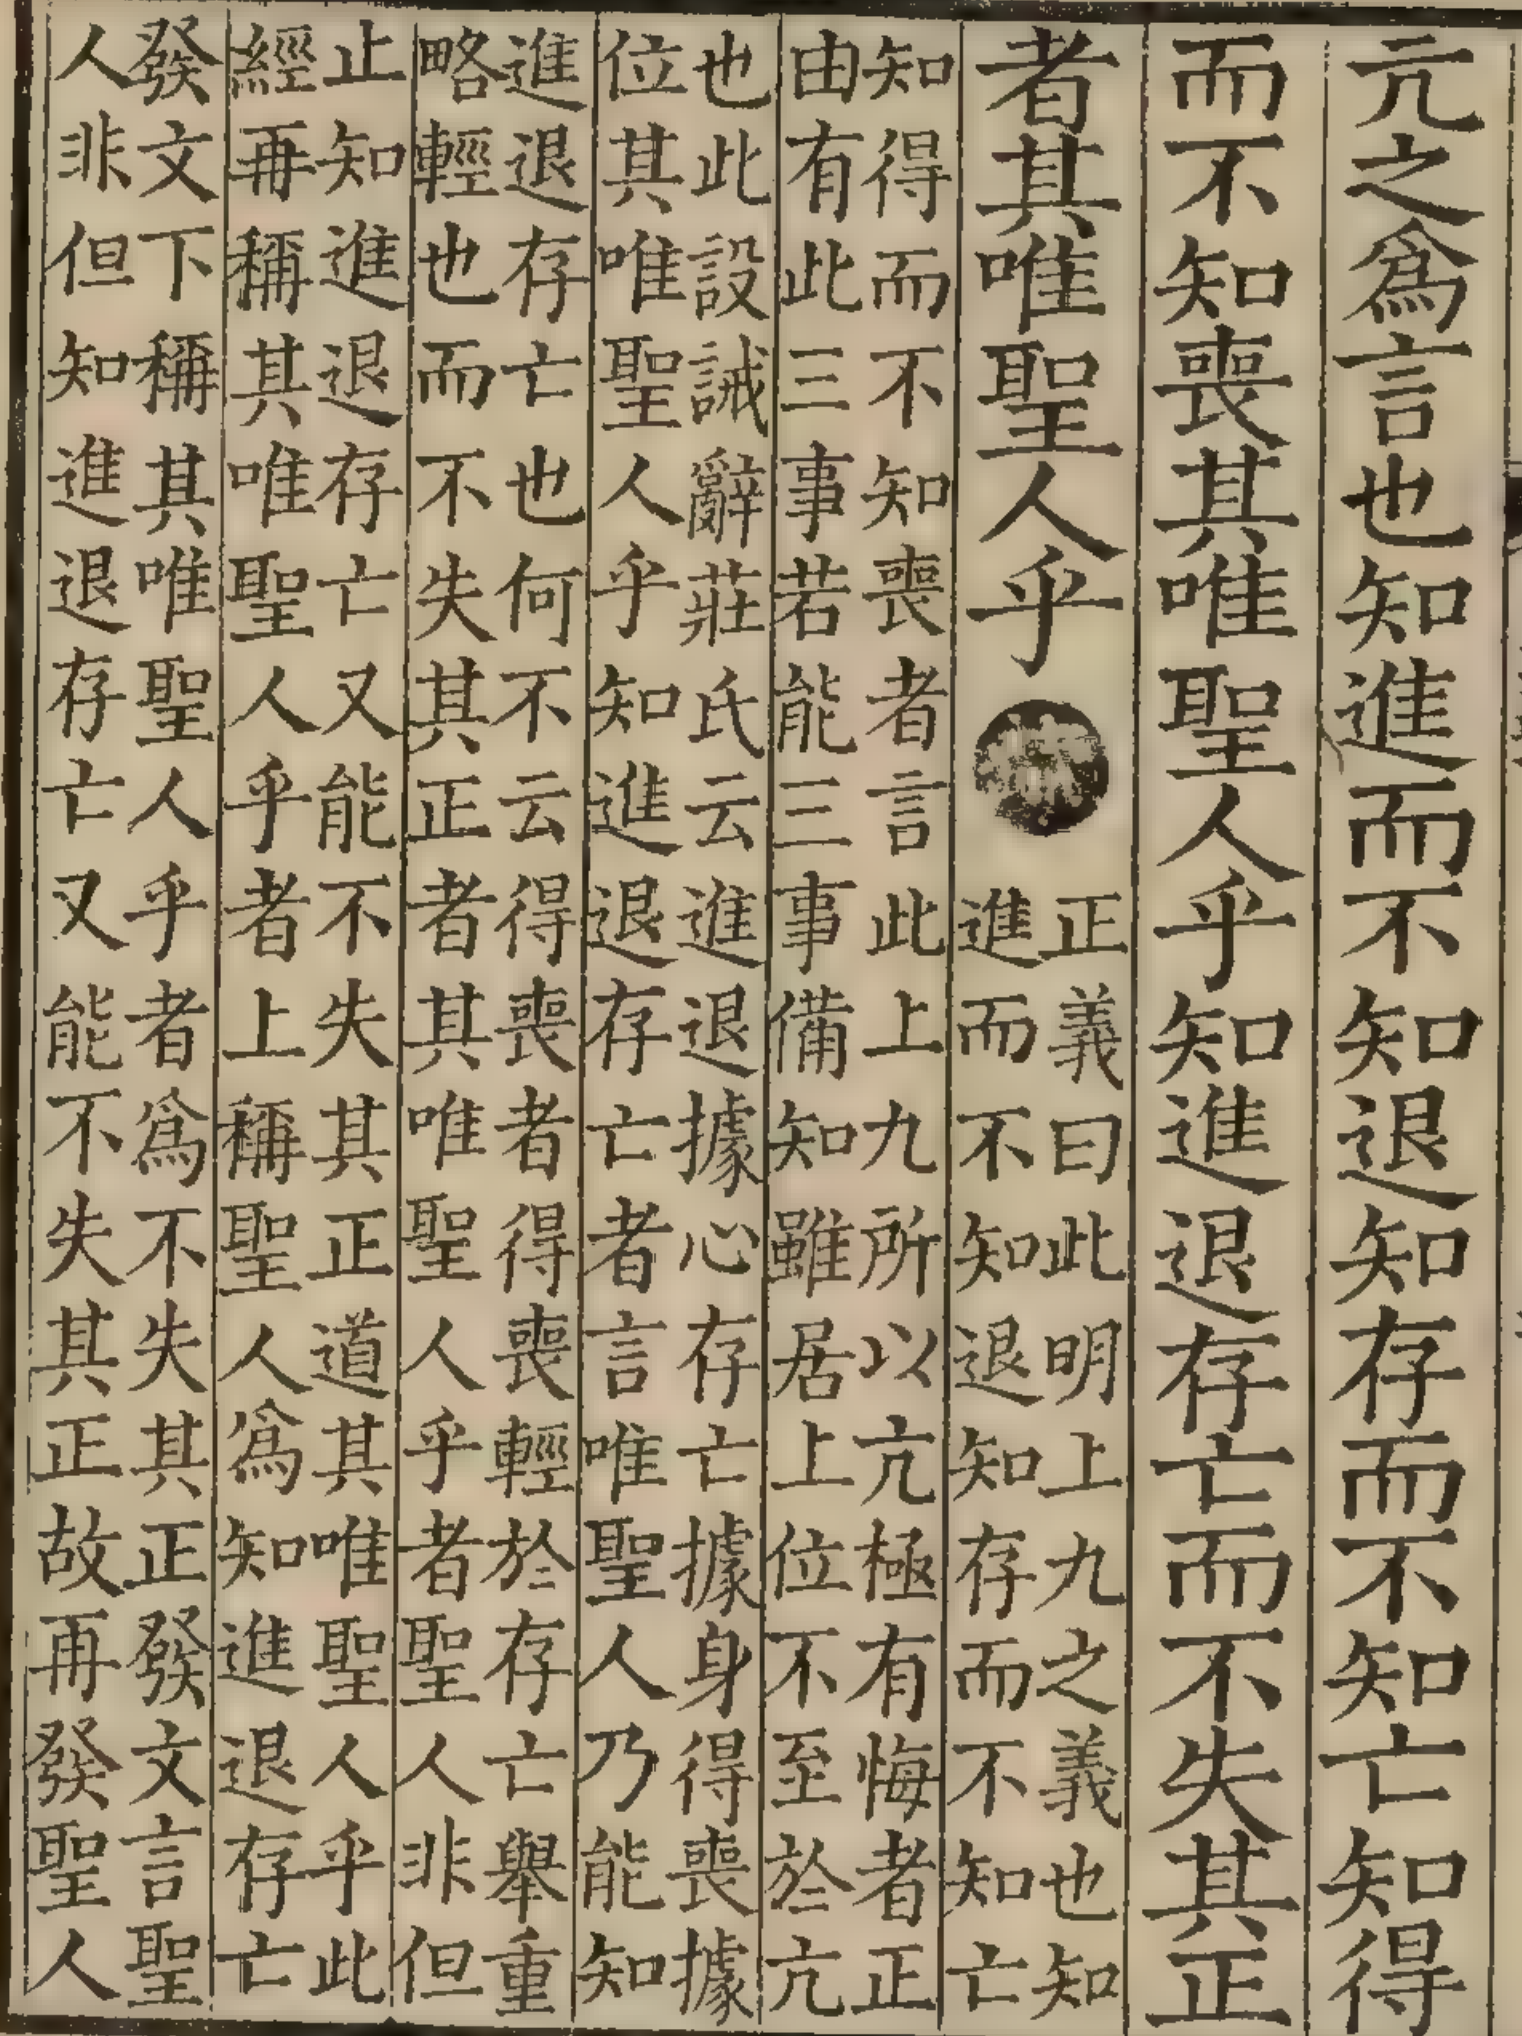 亢之爲言也知進而不知退知存而不知亡知得
而不知喪其唯聖人乎知進退存亡而不失其正
者其唯聖人乎
正義曰此明上九之義也知
進而不知退知存而不知亡
知得而不知喪者言此上九所以亢極有悔者正
由有此三事若能三事備知雖居上位不至於亢
也此設誡辭莊氏云進退據心存亡據身得喪據
位其唯聖人乎知進退存亡者言唯聖人乃能知
進退存亡也何不云得喪者得喪輕於存亡舉重
略輕也而不失其正者其唯聖人乎者聖人非但
止知進退存亡又能不失其正道其唯聖人乎此
經再稱其唯聖人乎者上稱聖人爲知進退存亡
發文下稱其唯聖人乎者爲不失其正發文言聖
人非但知進退存亡又能不失其正故再發聖人